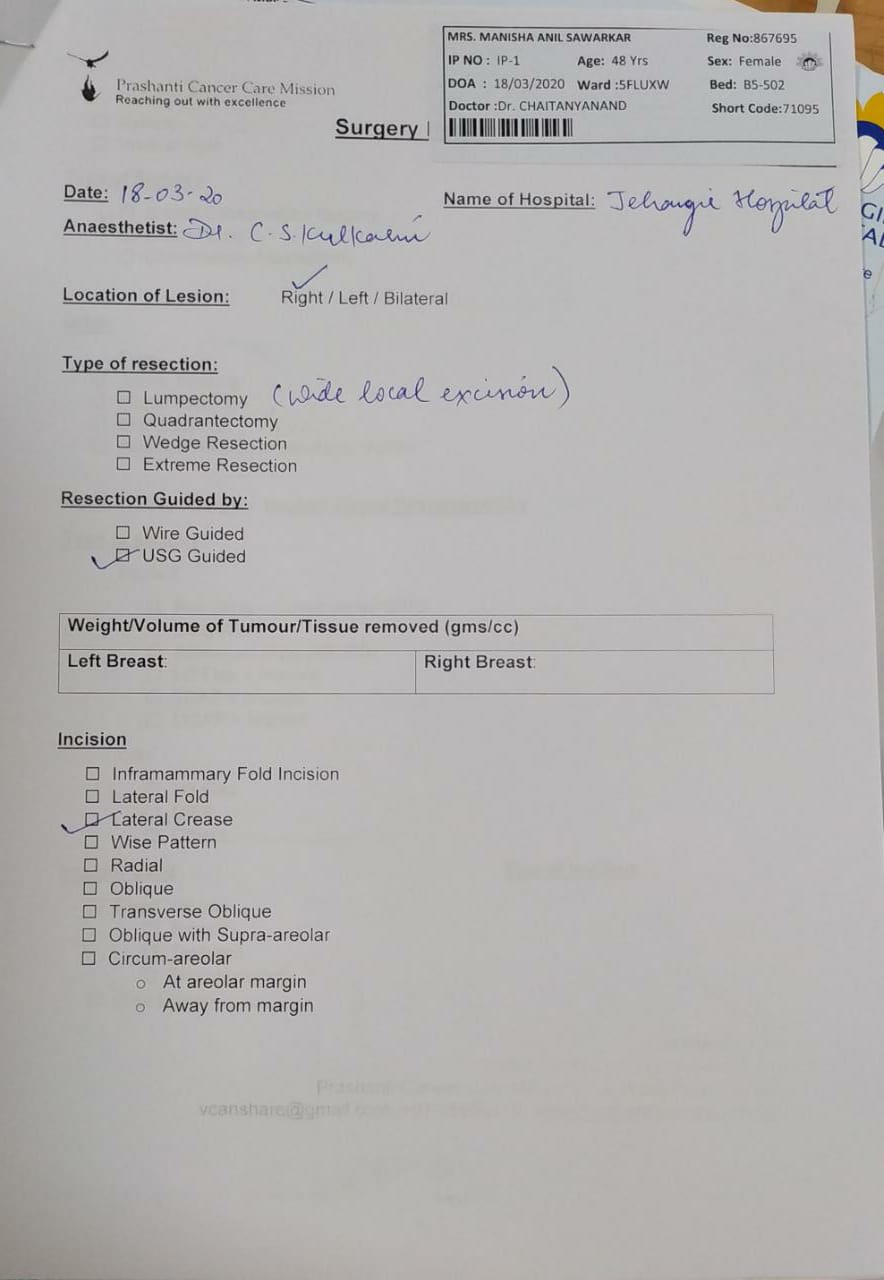 Prashanti Cancer Care Mission
Reaching out with excellence
MRS. MANISHA ANIL SAWARKAR Reg No:867695
IP NO : IP-1 Age: 48 Yrs Sex: Female
DOA : 18/03/2020 Ward :5FLUXW Bed: B5-502
Doctor :Dr. CHAITANYANAND Short Code:71095
Surgery
Date: 18-03-20 Name of Hospital: Jehangir Hospital
Anaesthetist: Dr. C.S. Kulkarni
Location of Lesion: Right / Left / Bilateral
Type of resection:
☐ Lumpectomy (wide local excision)
☐ Quadrantectomy
☐ Wedge Resection
☐ Extreme Resection
Resection Guided by:
☐ Wire Guided
☑ USG Guided
Weight/Volume of Tumour/Tissue removed (gms/cc)
Left Breast: Right Breast:
Incision
☐ Inframammary Fold Incision
☐ Lateral Fold
☑ Lateral Crease
☐ Wise Pattern
☐ Radial
☐ Oblique
☐ Transverse Oblique
☐ Oblique with Supra-areolar
☐ Circum-areolar
o At areolar margin
o Away from margin
vcanshare@gmail